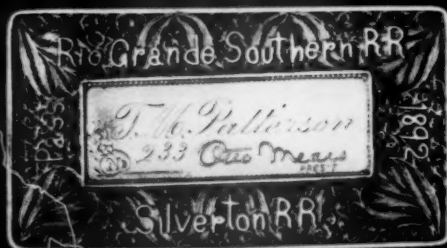 Rio Grande Southern RR
Pass
T. M. Patterson
233 Otto Mears
PRES'T
1892
Silverton RR